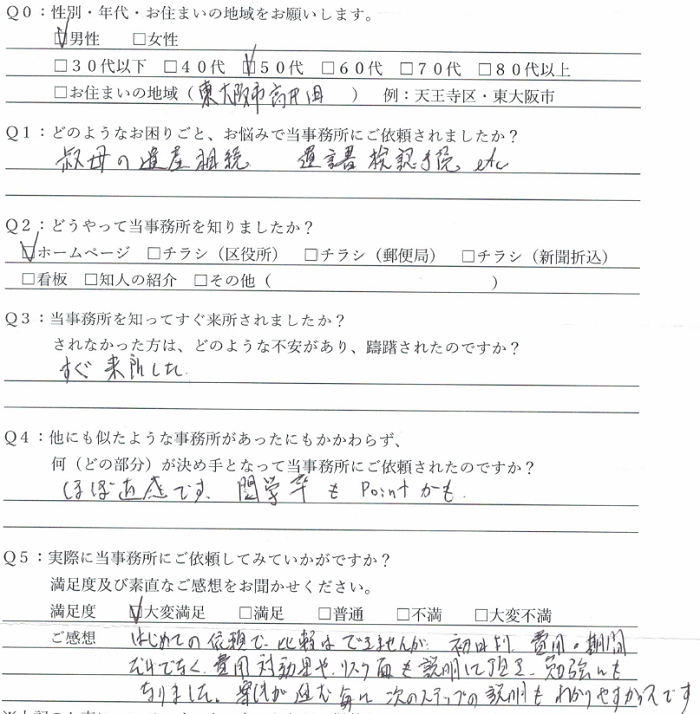 Q0：性別・年代・お住まいの地域をお願いします。
☑男性 □女性
□30代以下 □40代 ☑50代 □60代 □70代 □80代以上
□お住まいの地域（東大阪市高井田 ） 例：天王寺区・東大阪市
Q1：どのようなお困りごと、お悩みで当事務所にご依頼されましたか？
叔母の遺産相続 遺言書検認手続 etc
Q2：どうやって当事務所を知りましたか？
☑ホームページ □チラシ（区役所） □チラシ（郵便局） □チラシ（新聞折込）
□看板 □知人の紹介 □その他（ ）
Q3：当事務所を知ってすぐ来所されましたか？
されなかった方は、どのような不安があり、躊躇されたのですか？
すぐ来所した。
Q4：他にも似たような事務所があったにもかかわらず、
何（どの部分）が決め手となって当事務所にご依頼されたのですか？
ほぼ直感です。関学卒も Pointかも。
Q5：実際に当事務所にご依頼してみていかがですか？
満足度及び素直なご感想をお聞かせください。
満足度 ☑大変満足 □満足 □普通 □不満 □大変不満
ご感想 はじめての依頼で、比較はできませんが、初回より、費用・期間
だけでなく、費用対効果や、リスク面も説明して頂き、勉強にも
なりました。案件が進む毎に次のステップの説明もわかりやすかったです